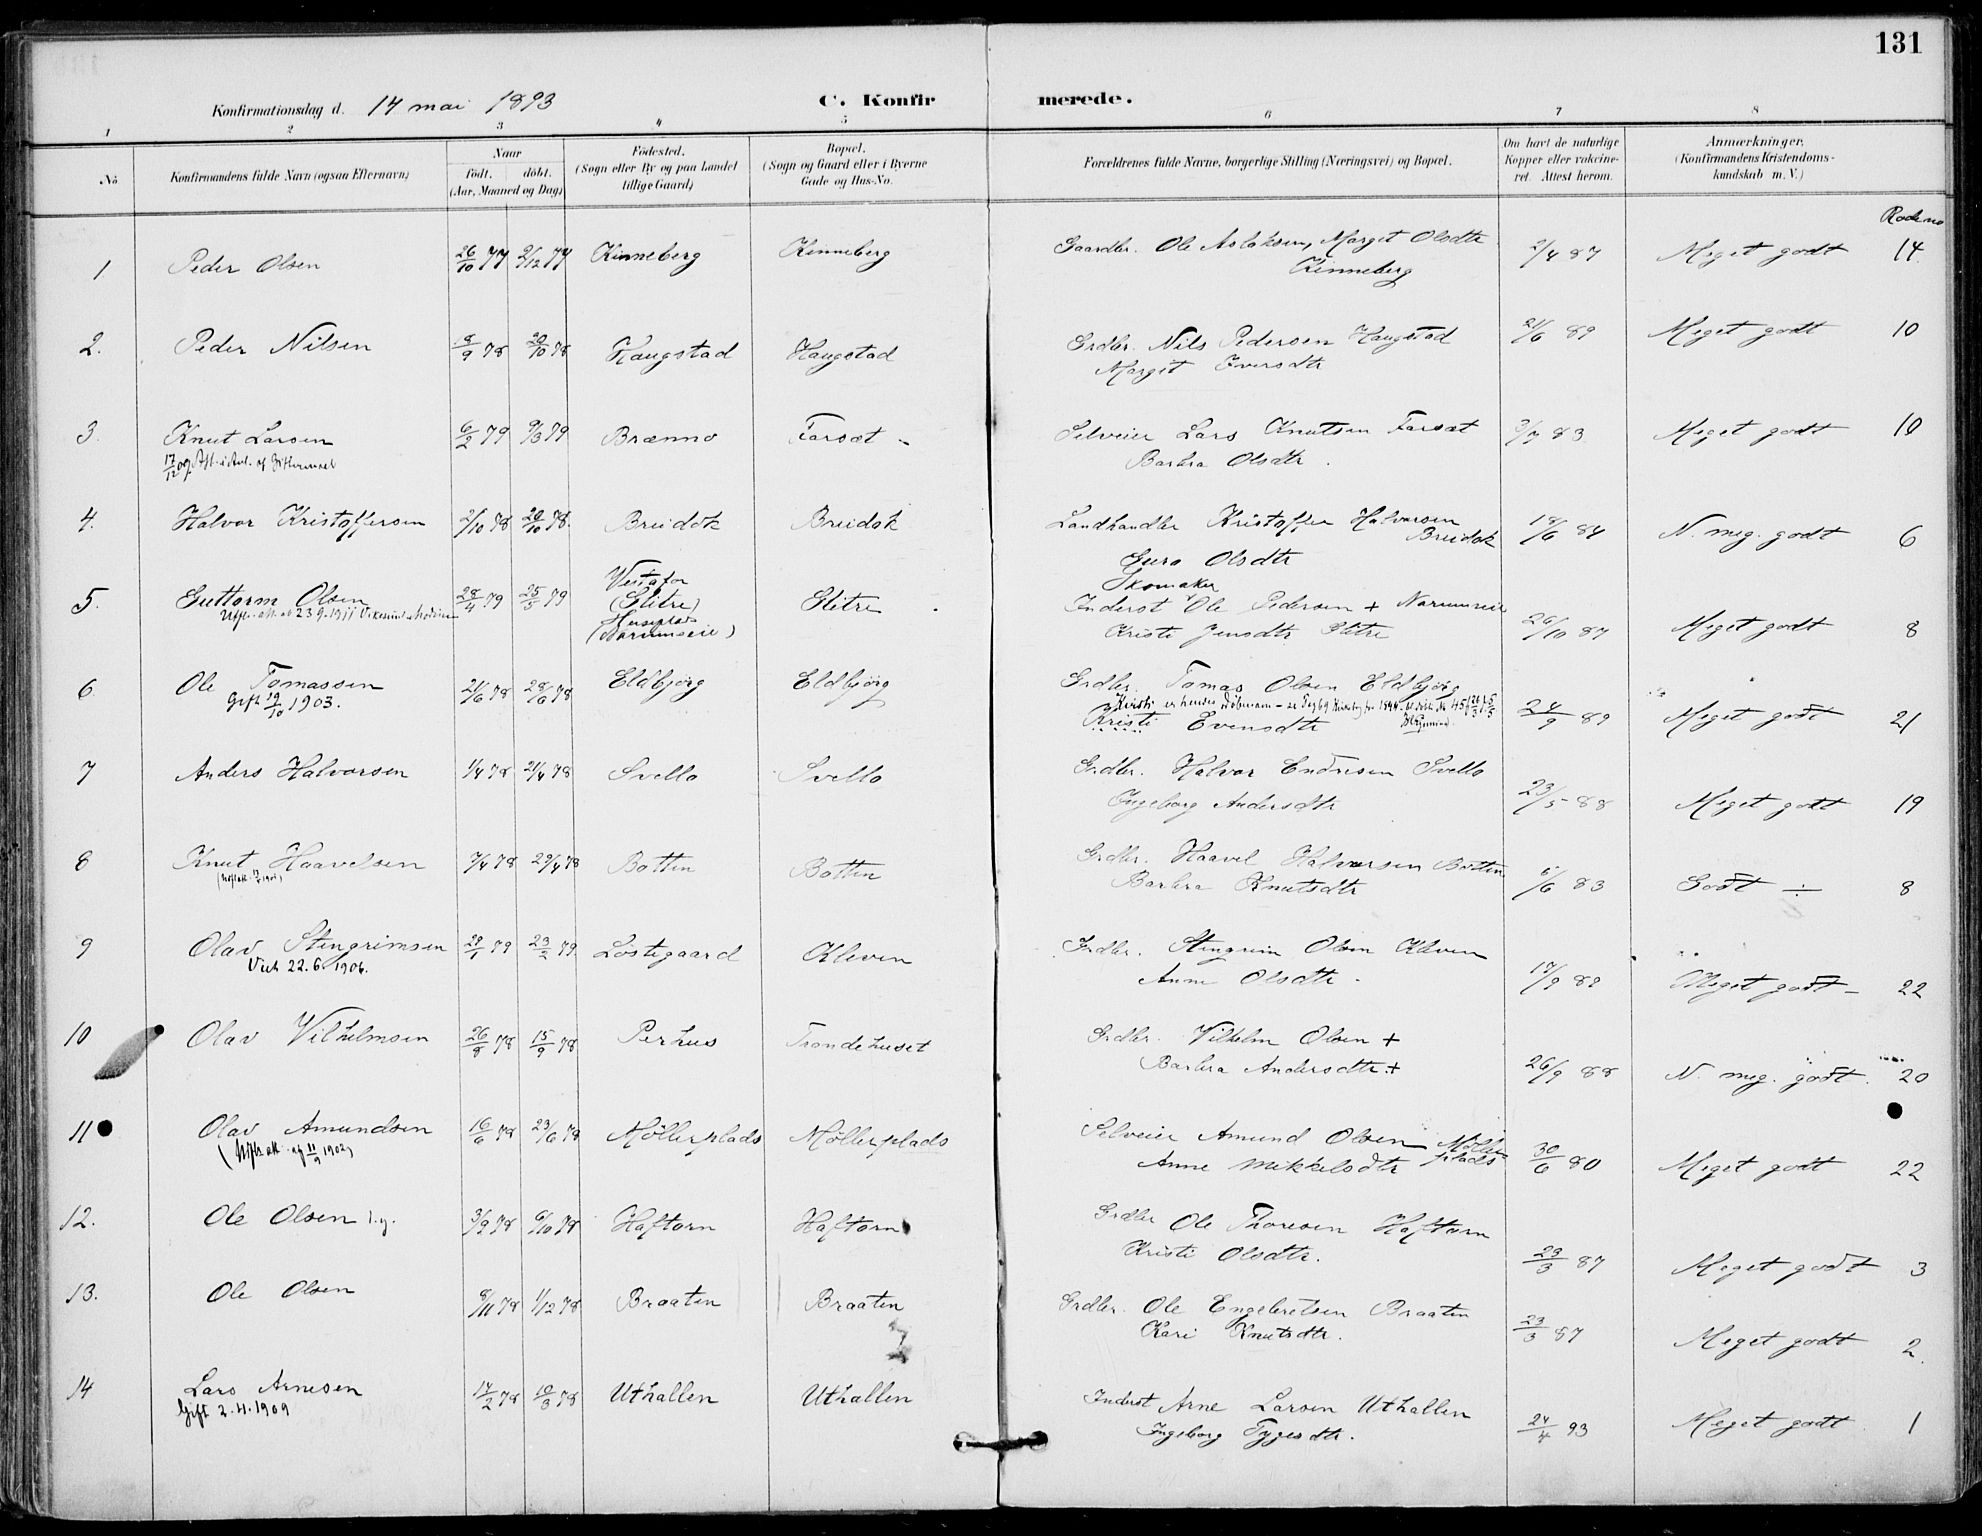 131
Konfirmationsdag d. 14 mai 1893
C. Konfirmerede.
1 2 3 4 5 6 7 8
No
Konfirmandens fulde Navn (ogsaa Efternavn)
Naar
födt. döbt.
(Aar, Maaned og Dag)
Födested.
(Sogn eller By og paa Landet tillige Gaard)
Bopæl.
(Sogn og Gaard eller i Byerne Gade og Hus-No.
Forældrenes fulde Navne, borgerlige Stilling (Næringsvei) og Bopæl.
Om havt de naturlige Kopper eller vakcineret. Attest herom.
Anmærkninger.
(Konfirmandens Kristendomskundskab m. V.)
Rode no
1 Peder Olsen 26/10 77 9/12 77 Kinneberg Kinneberg Gaardbr. Ole Aslaksen, Marget Olsdtr 2/4 87 Meget godt 14
Kinneberg
2. Peder Nilsen 8/9 78 20/10 78 Haugstad Haugstad Grdbr. Nils Pedersen Haugstad 21/6 89 Meget godt 10
Margit Iversdtr
3. Knut Larsen 6/2 79 9/3 79 Brænno Farsæt Selveier Lars Knutsen Farsæt 3/7 83 Meget godt 10
17/12 09 Att. i Anl. af
Barbra Olsdtr.
4. Halvor Kristoffersen 2/10 78 20/10 78. Breidok Breidok Landhandler Kristoffer Halvorsen 18/6 84 N. meg. godt 6
Breidok
Guro Olsdtr
5. Guttorm Olsen 28/4 79 25/5 79 Vestafor (Glitre) Glitre Skomaker
Inderst Ole Pedersen + 26/10 87 Meget godt 8
Kristi Jensdtr Glitre
6 Ole Tomassen 21/6 78 28/6 78 Eldbjørg Eldbjørg Grdbr. Tomas Olsen Eldbjørg
Gift 19/10 1903.
Kristi er hendes döbenavn
Kristi Evensdtr 24/9 89 Meget godt 21
7 Anders Halvorsen 1/4 78 21/4 78 Svello Svello Grdbr. Halvor Endresen Svello
Ingeborg Andersdtr 23/5 88 Meget godt 19
8 Knut Haavelsen 7/4 78 29/4 78 Botten Botten Grdbr. Haavel Halvorsen Botten
Barbra Knutsdtr 5/6 83 Godt ÷ 8
9 Olav Stengrimsen 29/1 79 23/2 79. Löstegaard Kleven Grdbr. Stengrim Olsen Kleven
Viet 22.6.1906.
Anne Olsdtr. 17/9 89 Meget godt - 22
10 Olav Vilhelmsen 26/8 78 15/9 78 Perhus Trondehuset Grdbr. Vilhelm Olsen +
Barbra Andersdtr. + 26/9 88 N. meg. godt. 20
11 Olav Amundsen 16/6 78 23/6 78 Møllerplads Møllerplads Selveier Amund Olsen Møllerplads
(Utfl. att. af 11/9 1902)
Anne Mikkelsdtr 30/6 80 Meget godt 22
12. Ole Olsen 3/9 78 6/10 78 Haftorn Haftorn Grdbr Ole Thoresen Haftorn
Kristi Olsdtr. 23/3 87 Meget godt 3
13. Ole Olsen 8/11 78 1/12 78 Braaten Braaten Grdbr. Ole Engebretsen Braaten
Kari Knutsdtr. 23/3 87 Meget godt 2.
14 Lars Arnesen 14/2 78 10/3 78 Uthallen Uthallen Inderst Arne Larsen Uthallen
Gift 2.4.1909
Ingeborg Tygesdtr. 24/4 93 Meget godt 1